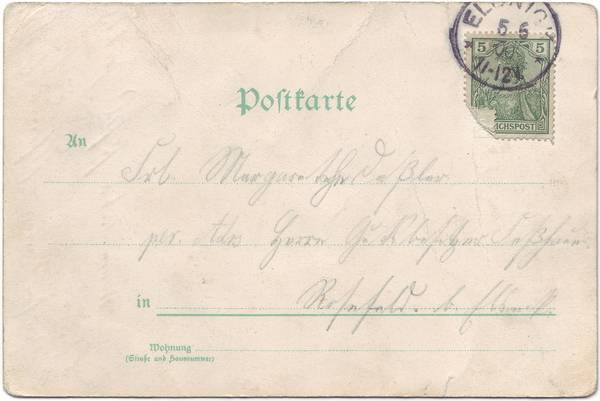 ELBING
5 6
00
11-12V.
5 5
REICHSPOST
Postkarte
An
Frl. Margarethe
per. Adr Herrn Gutsbesitzer
in
Rosefeld. b.
Wohnung
(Straße und Hausnummer)